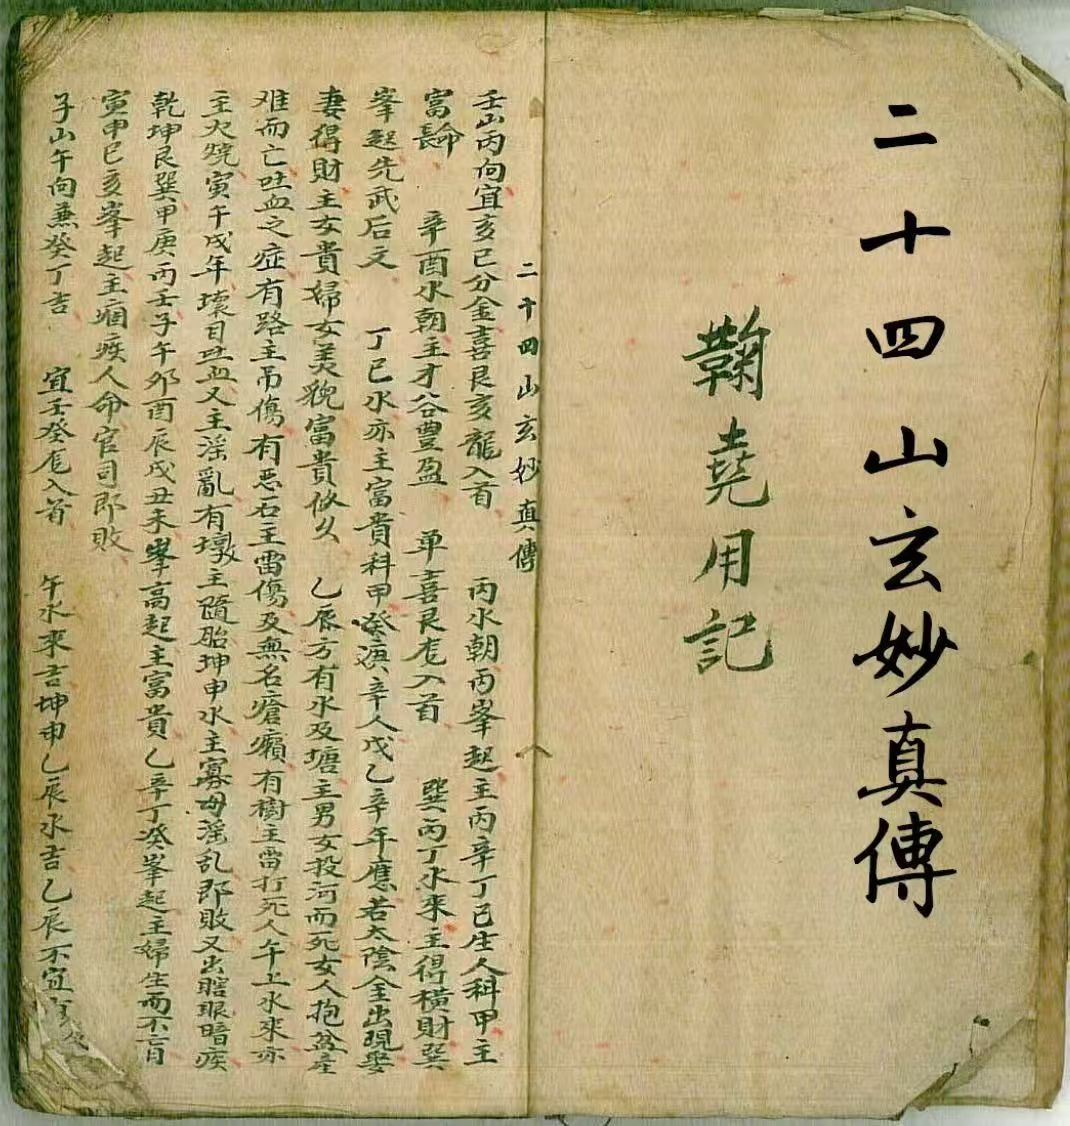 二十四山玄妙真傳
鞠堯用記
二十四山玄妙真傳
壬山丙向宜亥巳分金喜艮亥龍入首　丙水朝丙峯起主丙辛丁巳生人科甲主
富長命　辛酉水朝主才谷豊盈　单喜艮龙入首　巽丙丁水來主得横財巽
峯起先武后文　丁巳水亦主富貴科甲癸演辛人戊乙辛年應若太陰金出現娶
妻得財主女貴婦女美貌富貴攸久　乙辰方有水及塘主男女投河而死女人抱盆産
难而亡吐血之症有路主吊傷有惡石主雷傷及無名瘡癩有樹主雷打死人午上水來亦
主火燒寅午戌年壞目吐血又主淫亂有墩主隨胎坤申水主寡母淫乱即敗又出瞎眼暗疾
乾坤艮巽甲庚丙壬子午卯酉辰戌丑未峯高起主富貴乙辛丁癸峯起主婦生而不育
寅申巳亥峯起主痼疾人命官司即敗
子山午向兼癸丁吉　宜壬癸龙入首　午水來吉坤申乙辰水吉乙辰不宜